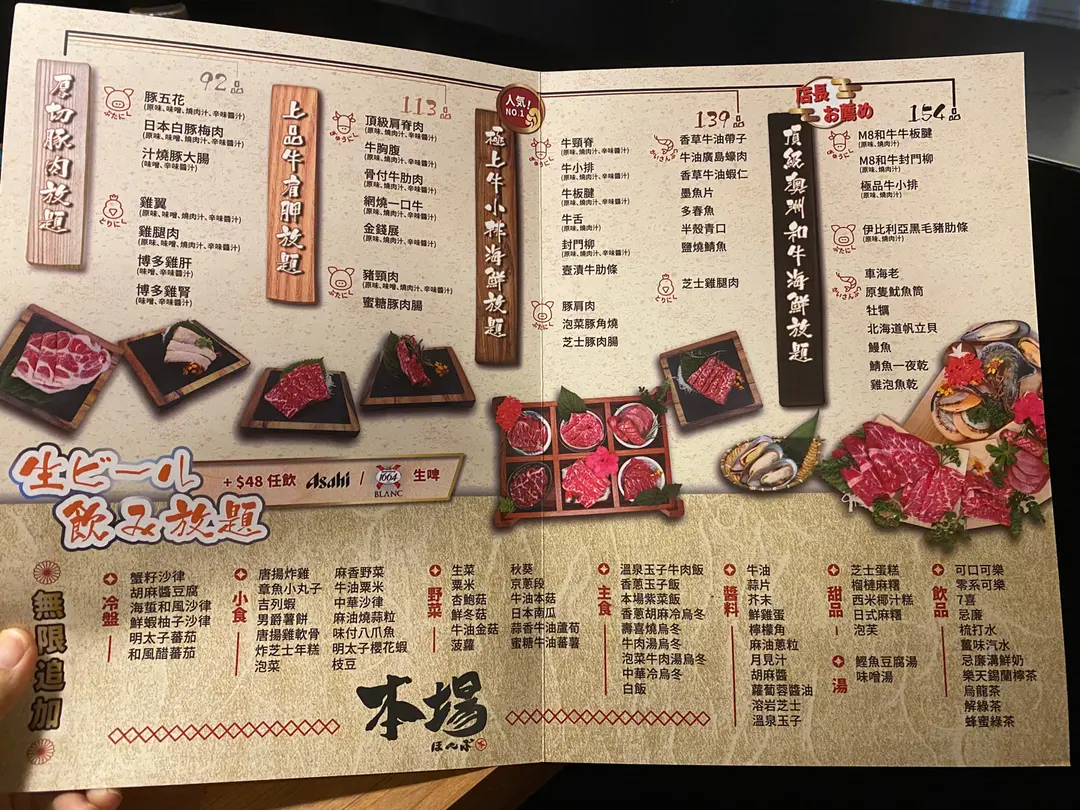 厚切豚肉放題
92品
ぶたにし
豚五花
(原味、味噌、燒肉汁、辛味醬汁)
日本白豚梅肉
(原味、味噌、燒肉汁、辛味醬汁)
汁燒豚大腸
(味噌、辛味醬汁)
とりにし
雞翼
(原味、味噌、燒肉汁、辛味醬汁)
雞腿肉
(原味、味噌、燒肉汁、辛味醬汁)
博多雞肝
(味噌、辛味醬汁)
博多雞腎
(味噌、辛味醬汁)
上品牛有胛放題
113品
ぎゅうにし
頂級肩脊肉
(原味、燒肉汁、辛味醬汁)
牛胸腹
(原味、燒肉汁、辛味醬汁)
骨付牛肋肉
(原味、燒肉汁、辛味醬汁)
網燒一口牛
(原味、燒肉汁、辛味醬汁)
金錢展
(原味、燒肉汁、辛味醬汁)
ぶたにし
豬頸肉
(原味、味噌、燒肉汁、辛味醬汁)
蜜糖豚肉腸
人気!
NO.1
極上牛小排海鮮放題
139品
ぎゅうにし
牛頸脊
(原味、燒肉汁、辛味醬汁)
牛小排
(原味、燒肉汁、辛味醬汁)
牛板腱
(原味、燒肉汁、辛味醬汁)
牛舌
(原味、燒肉汁)
封門柳
(原味、燒肉汁、辛味醬汁)
壺漬牛肋條
ぶたにし
豚肩肉
泡菜豚角燒
芝士豚肉腸
かいさんぶつ
香草牛油帶子
牛油廣島蠔肉
香草牛油蝦仁
墨魚片
多春魚
半殼青口
鹽燒鯖魚
とりにし
芝士雞腿肉
店長
お薦め
頂級澳洲和牛海鮮放題
154品
ぎゅうにし
M8和牛牛板腱
(原味、燒肉汁)
M8和牛封門柳
(原味、燒肉汁)
極品牛小排
(原味、燒肉汁)
ぶたにし
伊比利亞黑毛豬肋條
かいさんぶつ
車海老
原隻魷魚筒
牡犡
北海道帆立貝
鰻魚
鯖魚一夜乾
雞泡魚乾
生ビール
飲み放題
+ $48 任飲 Asahi / 1664 BLANC 生啤
無限追加
冷盤
蟹籽沙律
胡麻醬豆腐
海蜇和風沙律
鮮蝦柚子沙律
明太子蕃茄
和風醋蕃茄
小食
唐揚炸雞
章魚小丸子
吉列蝦
男爵薯餅
唐揚雞軟骨
炸芝士年糕
泡菜
麻香野菜
牛油粟米
中華沙律
麻油燒蒜粒
味付八爪魚
明太子櫻花蝦
枝豆
野菜
生菜
粟米
杏鮑菇
鮮冬菇
牛油金菇
菠蘿
秋葵
京蔥段
牛油本菇
日本南瓜
蒜香牛油蘆荀
蜜糖牛油蕃薯
主食
溫泉玉子牛肉飯
香蔥玉子飯
本場紫菜飯
香蔥胡麻冷烏冬
壽喜燒烏冬
牛肉湯烏冬
泡菜牛肉湯烏冬
中華冷烏冬
白飯
醬料
牛油
蒜片
芥末
鮮雞蛋
檸檬角
麻油蔥粒
月見汁
胡麻醬
蘿蔔蓉醬油
溶岩芝士
溫泉玉子
甜品
芝士蛋糕
榴槤麻糬
西米椰汁糕
日式麻糬
泡芙
湯
鰹魚豆腐湯
味噌湯
飲品
可口可樂
零系可樂
7喜
忌廉
梳打水
薑味汽水
忌廉溝鮮奶
樂天錫蘭檸茶
烏龍茶
解綠茶
蜂蜜綠茶
本場
ほんば